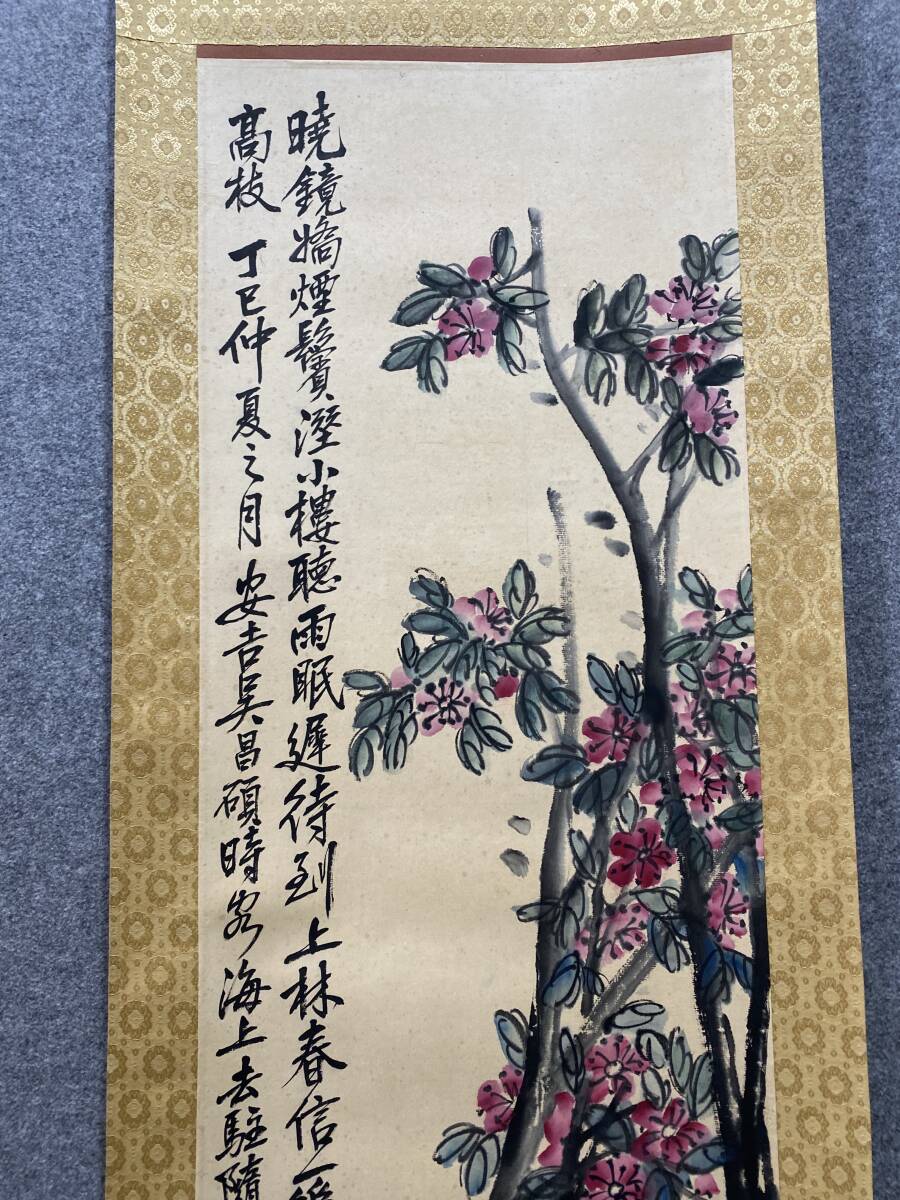 曉鏡嬌煙鬢溼小樓聽雨眠遲待到上林春信一
高枝 丁巳仲夏之月 安吉吳昌碩時客海上去駐隨